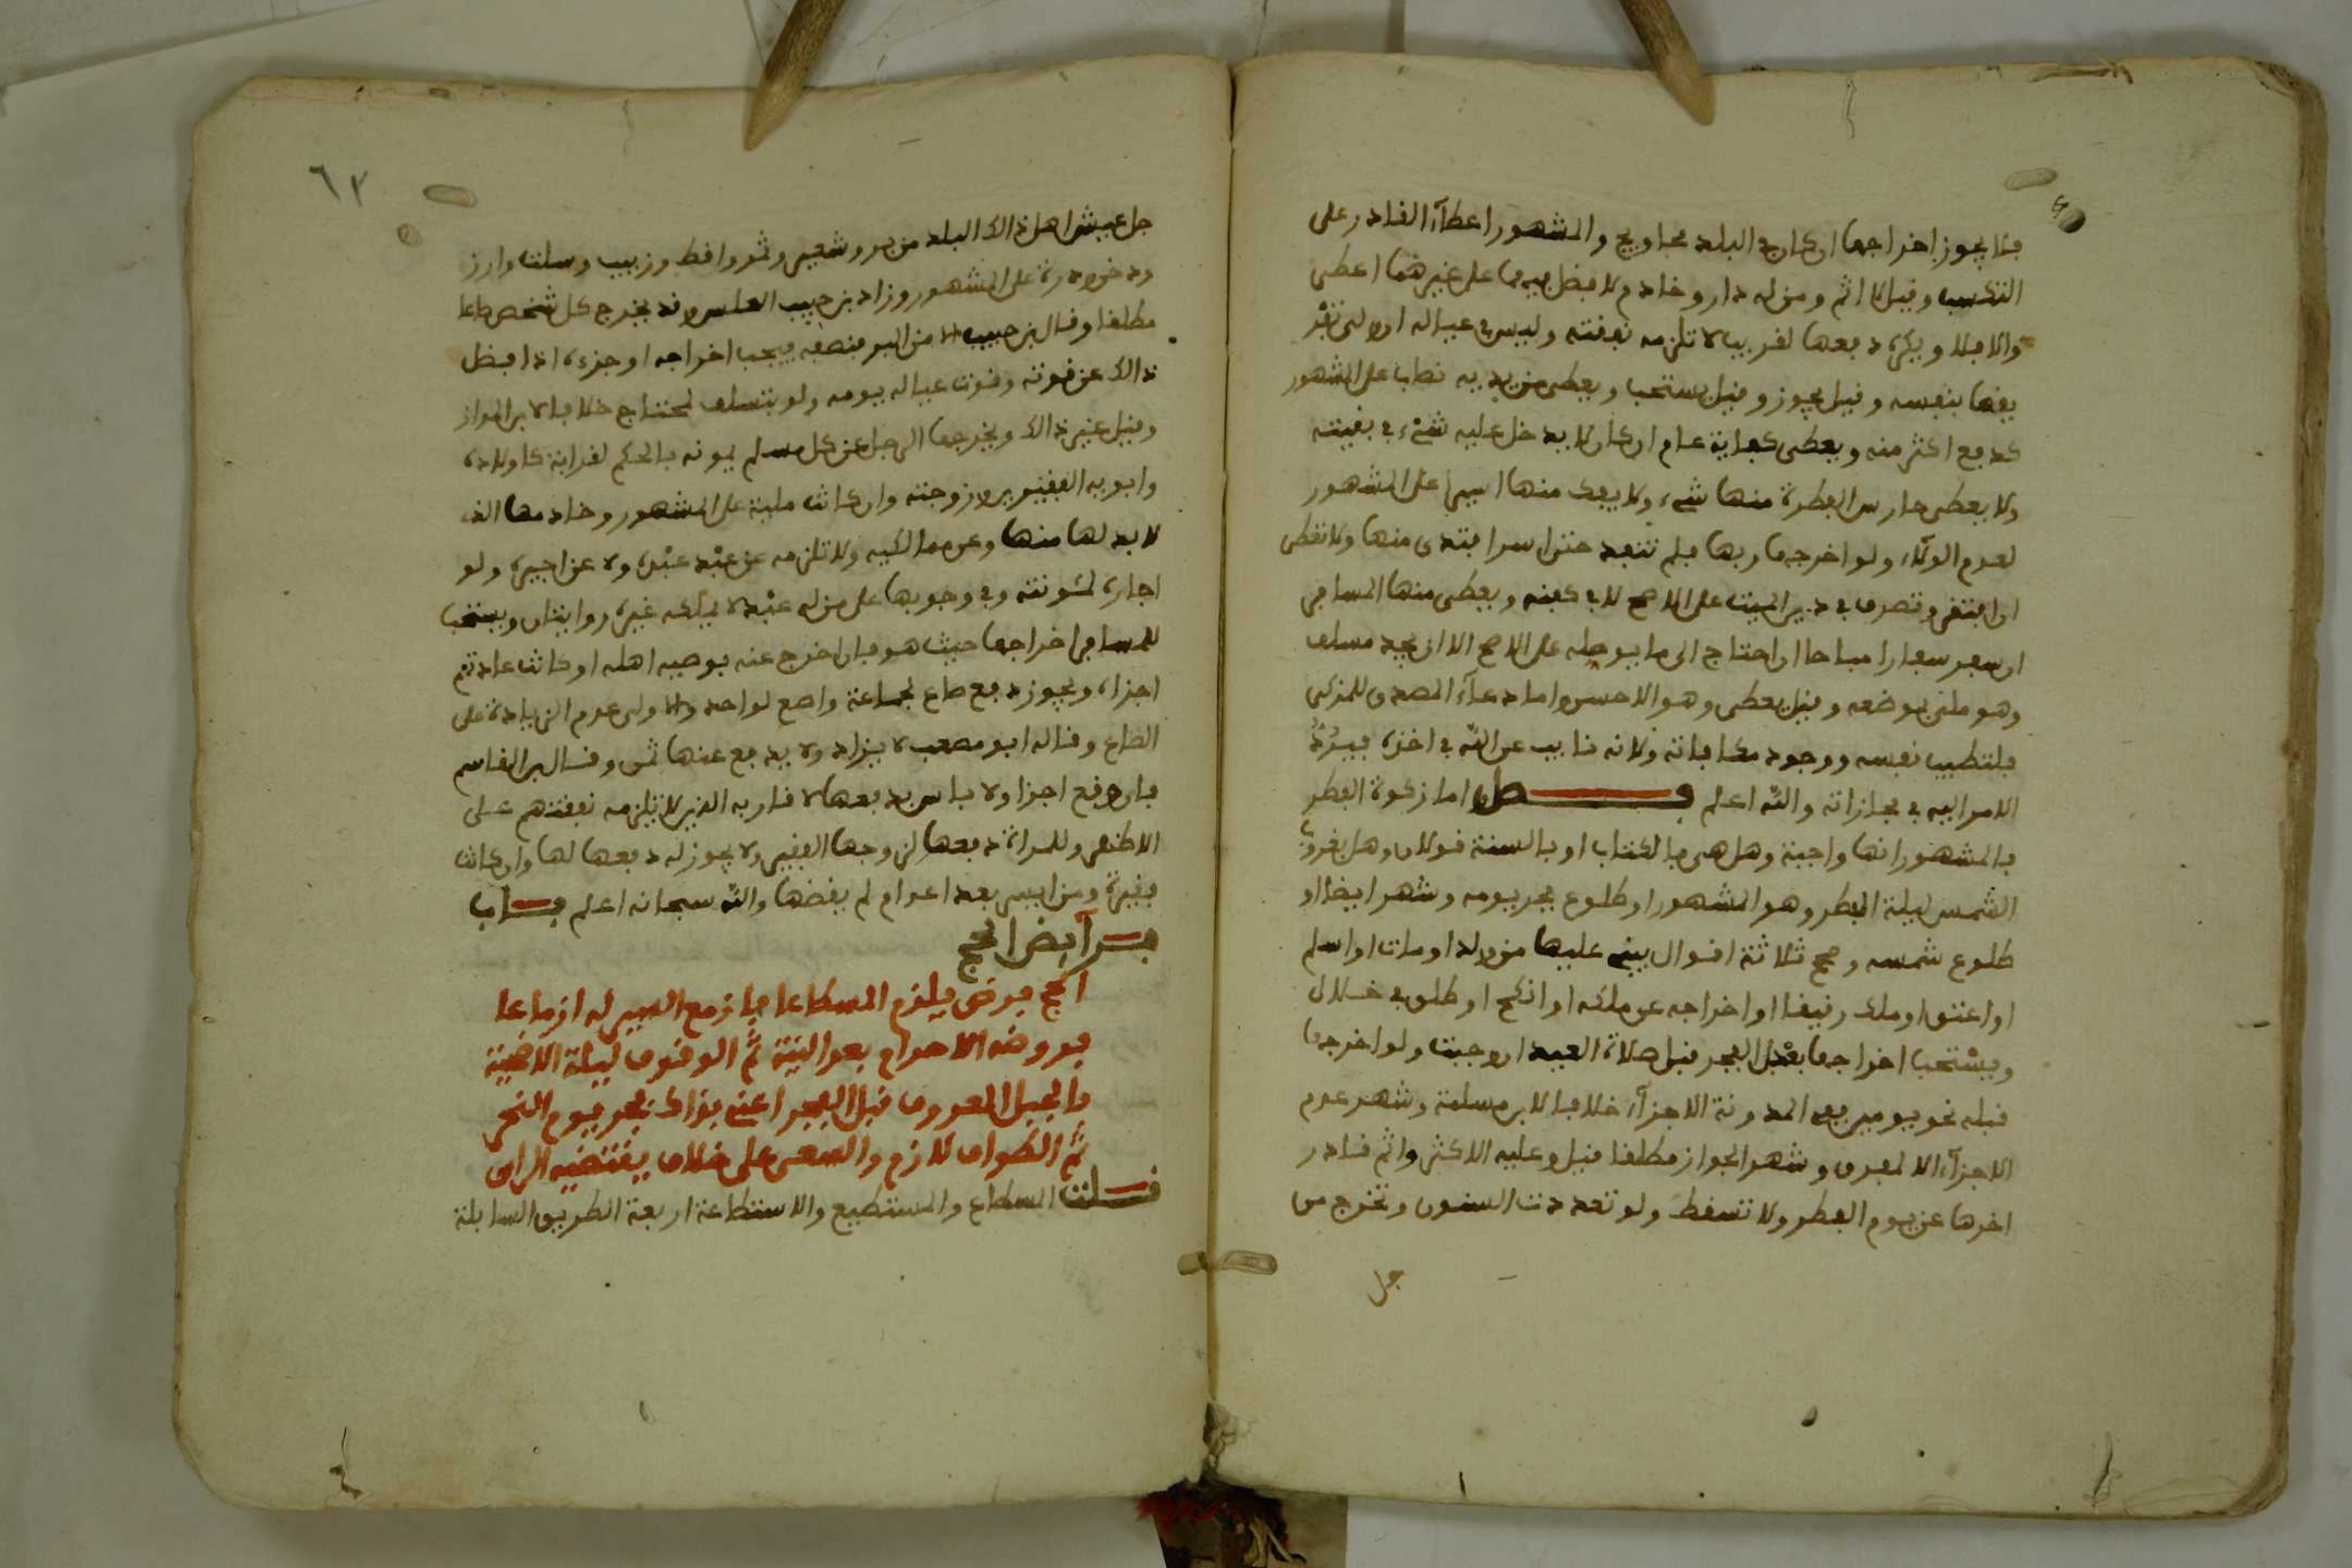 فلا يجوز اخراجها ان كان في البلد محاويج والمشهور اعطآء القادر على
التكسب وقيل لا اثم ومن له دار وخادم لا فضل فيهما على غيرهما اعطى
والا فلا ويكره دفعها لقريب لا تلزمه نفقته وليس في عياله ان ولى
بنفسه وقيل يجوز وقيل يستحب ويعطى من بيده نصاب على المشهور
كدفع اكثر منه ويعطى كفاية عام ان كان لا يدخل عليه شىء في بقيته
ولا يعطى حارس الفطرة منها شىء ولا يفك منها اسير على المشهور
لعدم الولاء ولو اخرجها ربها فلم تنفد حتى اسر افتدى منها ولا تعطى
ان افتقر وتصرف في دين الميت على الاصح لا في كفنه ويعطى منها المسافر
ان سفر سفارا مباحا ان احتاج الى ما يوصله على الاصح الا ان يجد مسلف
وهو ملي بموضعه وقيل يعطى وهو الاحسن واما دعآء المصدق للمزكى
فلتطييب نفسه ووجود مكافاته ولانه نايب عن الله في اخذه فيرد
الامر اليه في مجازاته والله اعلم فصل اما زكوة الفطر
فالمشهور انها واجبة وهل هى بالكتاب او بالسنة قولان وهل بغروب
الشمس ليلة الفطر وهو المشهور او طلوع فجر يومه وشهر ايضا او
طلوع شمسه وصحح ثلاثة اقوال يبنى عليها من ولد او مات او اسلم
او اعتق او ملك رقيقا او اخراجه عن ملكه او انكح او طلق في خلال
ويستحب اخراجها بعد الفجر قبل صلاة العيد ان وجبت ولو اخرجها
قبله بنحو يومين ففي المدونة الاجزآء خلافا لابن مسلمة وشهر عدم
الاجزآء الا لمفرق وشهر الجواز مطلقا قيل وعليه الاكثر واثم قادر
اخرها عن يوم الفطر ولا تسقط ولو تعددت السنون وتخرج من
جل
٦٢
جل عيش اهل ذالك البلد من بر وشعير وتمر واقط وزبيب وسلت وارز
ودخن وذرة على المشهور وزاد بن حبيب العلس وقد يخرج كل شخص صاعا
مطلقا وقال بن حبيب الا من البر فنصفه فيجب اخراجه او جزءه اذا فضل
ذالك عن قوته وقوت عياله يومه ولو بتسلف لمحتاج خلافا لابن المواز
وقيل غير ذالك ويخرجها الرجل عن كل مسلم يمونه بالحكم لقرابة كاولاده
وابويه الفقيرين وزوجته وان كانت ملية على المشهور وخادمها الذى
لا بد لها منها وعن مماليكه ولا تلزمه عن عبد عبده ولا عن اجيره ولو
اجاره لمئونته وفي وجوبها على من له عبد لا يملكه غيره روايتان ويستحب
للمسافر اخراجها حيث هو فان اخرج عنه بوصيه اهله او كانت عادتهم
اجزاه ويجوز دفع صاع لجماعة واصع لواحد والاولى عدم الزيادة على
الصاع وقاله ابو مصعب لا يزاد ولا يدفع عنها ثمن وقال ابن القاسم
فان وقع اجزا ولا باس بدفعها لاقاربه الذين لا تلزمه نفقتهم على
الاظهر وللمراة دفعها لزوجها الفقير ولا يجوز له دفعها لها وان كانت
فقيرة ومن ايسر بعد اعوام لم يقضها والله سبحانه اعلم باب
فرآيض الحج
الحج فرض يلزم المسطاعا فازمع السير له ازماعا
فروضه الاحرام بعد النية ثم الوقوف ليلة الاضحية
بالجبل المعروف قبل الفجر اعنى بذاك فجر يوم النحر
ثم الطواف لازم والسعى على خلاف يقتضيه الراى
قلت المسطاع والمستطيع والاستطاعة اربعة الطريق السابلة